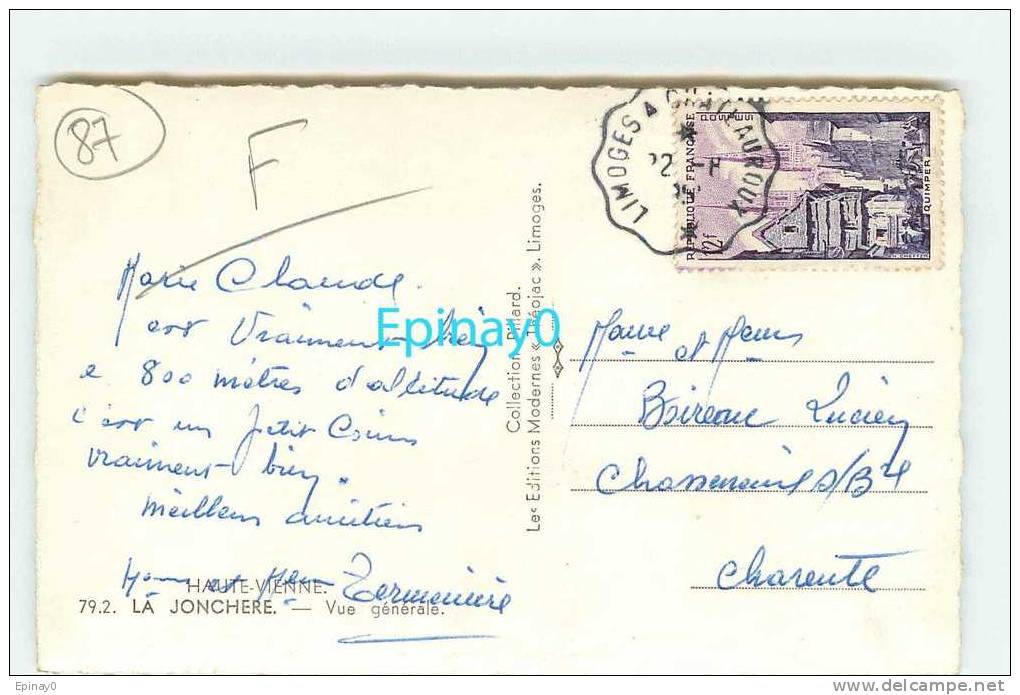 87
F
LIMOGES A CHATEAUROUX
22
POSTES
REPUBLIQUE FRANÇAISE
12f
QUIMPER
Marie Claude
est Vraiment bien
a 800 mètres d'altitude
c'est un Petit Coin
vraiment bien.
meilleurs amitiés
HAUTE-VIENNE.
79.2. LA JONCHERE. — Vue générale.
Collection Pillard.
Les Editions Modernes « Théojac ». Limoges.
et
Boireau Lucien
Chasseneuil s/B
Charente
Epinay0
Epinay0
www.delcampe.net